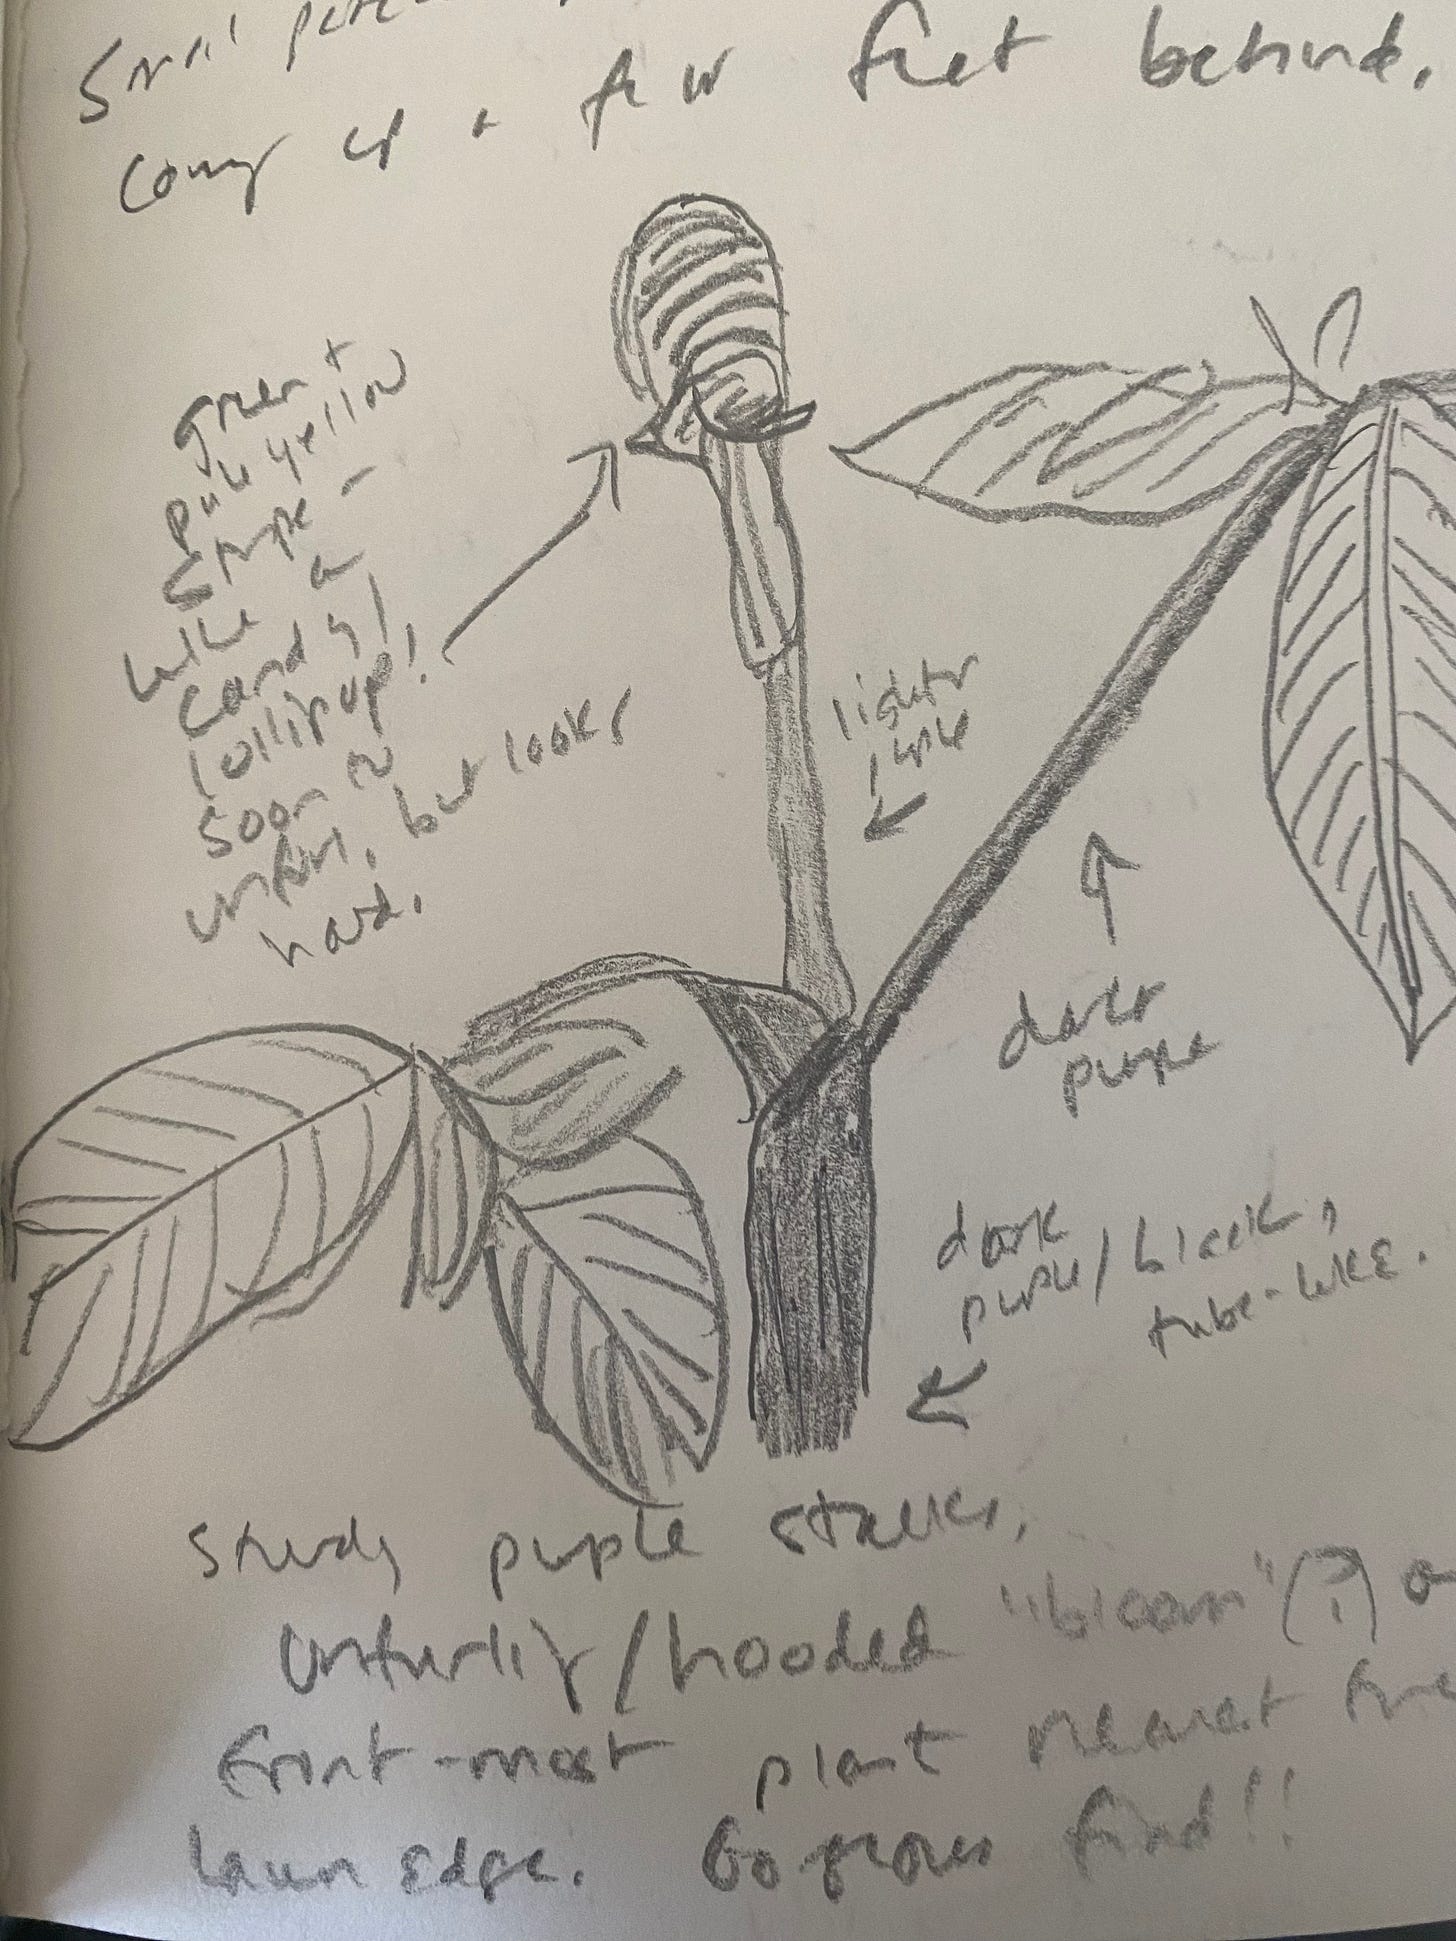 Small
coming up a few feet behind.
green +
pale yellow
stripe -
like a
candy
lollipop!
soon to
unfurl, but looks
hard.
lighter
purple
darker
purple
dark
purple/black,
tube-like.
sturdy purple stalks.
Unfurling/hooded "bloom" (?) o
front-most plant nearest
lawn edge. Gorgeous find!!